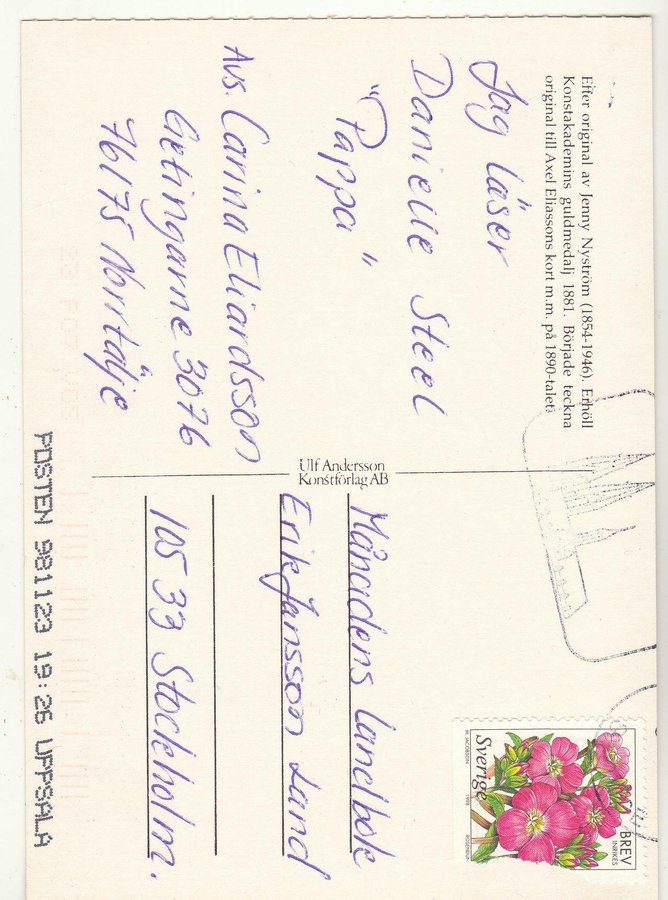 Efter original av Jenny Nyström (1854-1946). Erhöll
Konstakademins guldmedalj 1881. Började teckna
original till Axel Eliassons kort m.m. på 1890-talet.
Jag läser
Danielle Steel
"Pappa"
Avs. Carina Eliardsson
Getingarne 3076
76175 Norrtälje
Ulf Andersson
Konstförlag AB
Månadens landbok
Erik Jansson Land
105 33 Stockholm.
BREV
INRIKES
Sverige
M. JACOBSON 1998 ROSENDUN
POSTEN 981123 19:26 UPPSALA